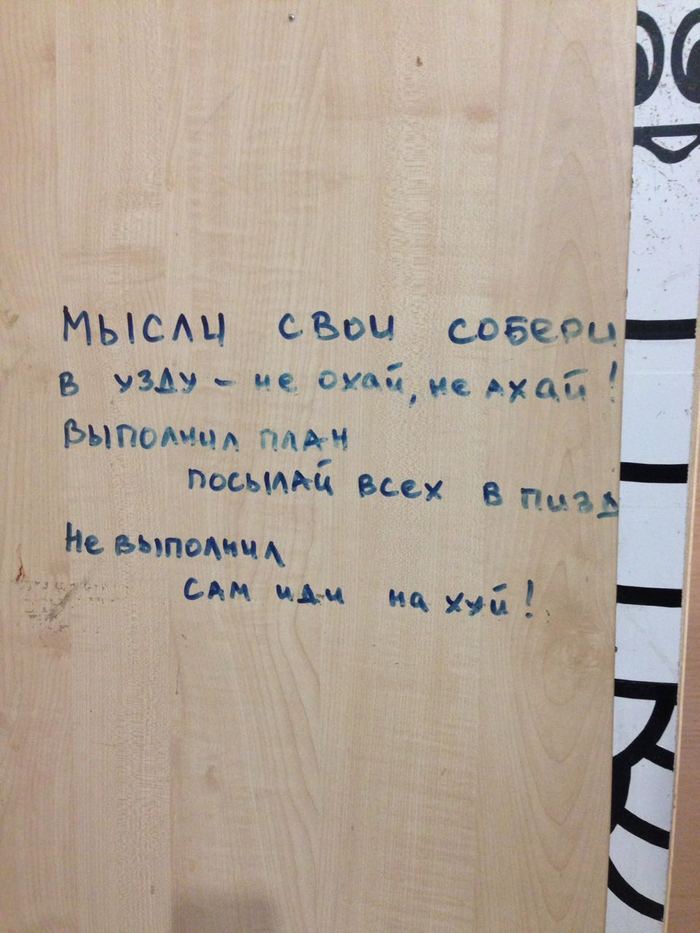 Мысли свои собери
в узду - не охай, не ахай!
Выполнил план
посылай всех в пизд
Не выполнил
сам иди на хуй!